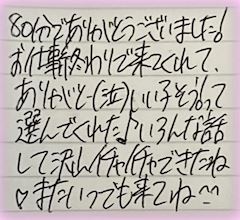 80分でありがとうございました!
お仕事終わりで来てくれて、
ありがと(泣)いい子そうって
選んでくれた♪いろんな話
して沢山イチャイチャできたね
♡またいつでも来てね^^